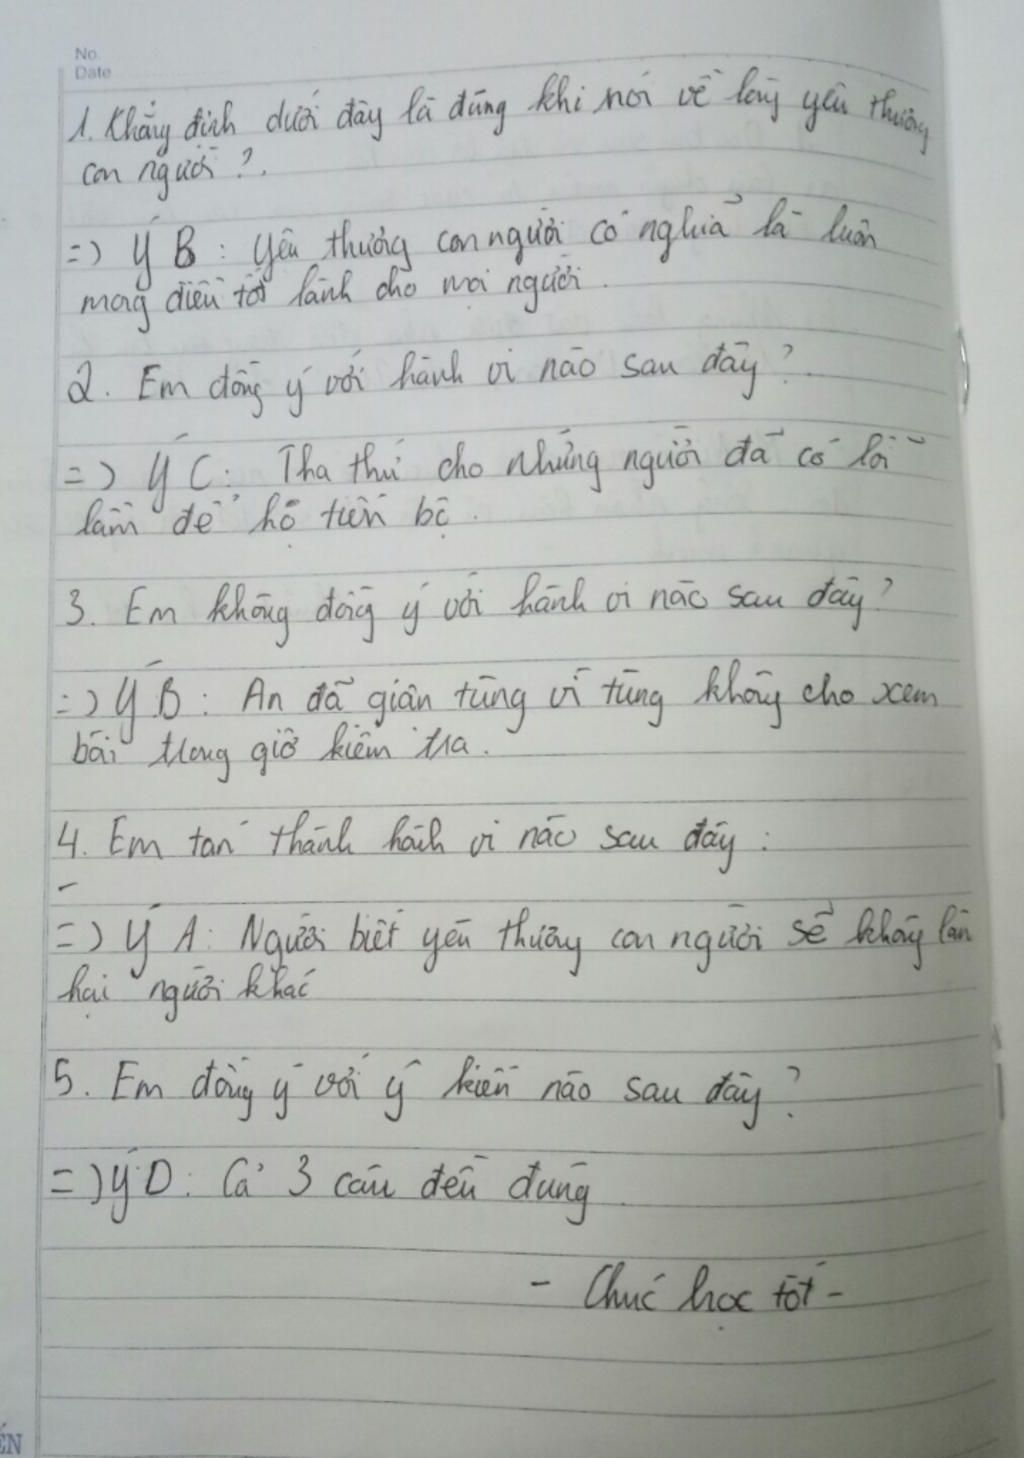 No.
Date
1. Khẳng định dưới đây là đúng khi nói về lòng yêu thương
con người ?.
=) Ý B : Yêu thương con người có nghĩa là luôn
mang điều tốt lành cho mọi người.
2. Em đồng ý với hành vi nào sau đây ?
=) Ý C : Tha thứ cho những người đã có lỗi
lầm để họ tiến bộ.
3. Em không đồng ý với hành vi nào sau đây ?
=) Ý B : An đã giận tùng vì tùng không cho xem
bài trong giờ kiểm tra.
4. Em tán thành hành vi nào sau đây :
=) Ý A : Người biết yêu thương con người sẽ không làm
hại người khác
5. Em đồng ý với ý kiến nào sau đây ?
=) Ý D : Cả 3 câu đều đúng
- Chúc học tốt -
ẾN